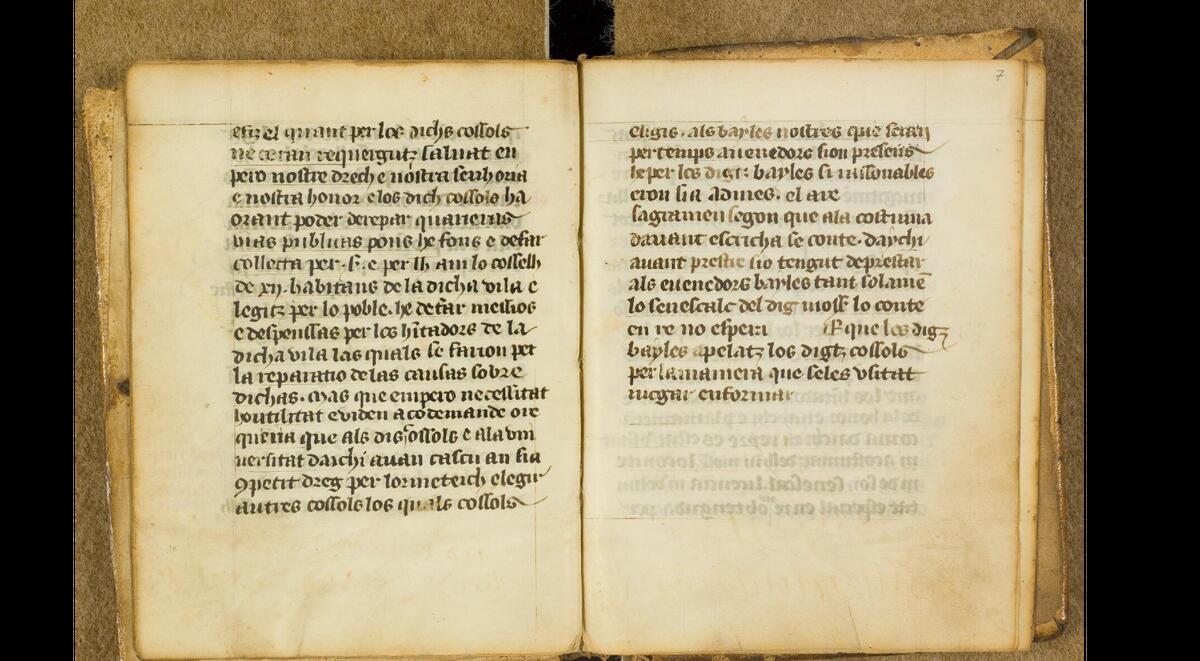 per los dichs cossols
requergutz saluat en
pero nostre drech e nostra senhoria
e nostra honor e los dich cossols ha
orant poder de repar quarieras
vias publicas pons he fons e defar
collecta per .s. e per lh am lo cosselh
de xij habitans de la dicha vila e
legitz per lo poble. he defar messios
e despenssas per los hitadors de la
dicha vila las quals se farion per
la reparatio de las causas sobre
dichas. mas que empero necessitat
houtilitat e viden aco demande
que als dis cossols e ala vni
uersitat daichi auan cascu an sia
9petit dreg per lor meteich elegir
autres cossols los quals cossols
7
eligis. als bayles nostres que seran
per temps auenedors sion presens
he per los digz bayles si
sia admes. el are
sagramen segon que ala costuma
dauant escricha se conte. daychi
auant prestar sio tengut de prestar
als euenedors bayles tant solame
lo senescalc del dig moss lo conte
en re no esperi E que los digz
bayles apelatz los digtz cossols
per la maniera que seles vsitat